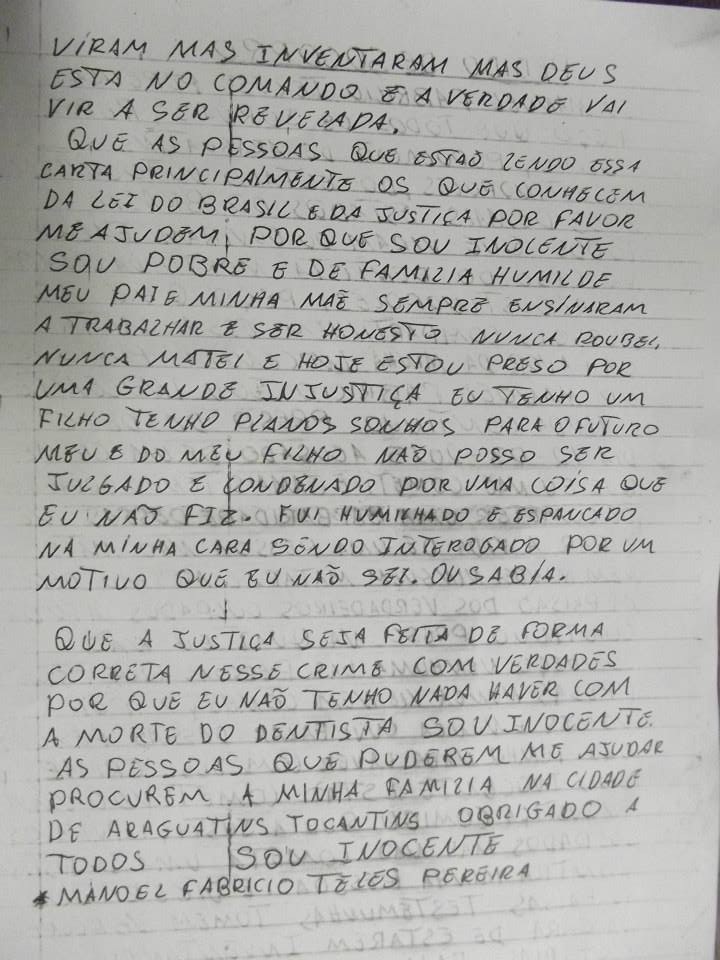 VIRAM MAS INVENTARAM MAS DEUS
ESTA NO COMANDO E A VERDADE VAI
VIR A SER REVELADA.
QUE AS PESSOAS QUE ESTAÕ LENDO ESSA
CARTA PRINCIPALMENTE OS QUE CONHECEM
DA LEI DO BRASIL E DA JUSTIÇA POR FAVOR
ME AJUDEM, POR QUE SOU INOCENTE
SOU POBRE E DE FAMILIA HUMILDE
MEU PAI E MINHA MAẼ SEMPRE ENSINARAM
A TRABALHAR E SER HONESTO NUNCA ROUBEI,
NUNCA MATEI E HOJE ESTOU PRESO POR
UMA GRANDE INJUSTIÇA EU TENHO UM
FILHO TENHO PLANOS SONHOS PARA O FUTURO
MEU E DO MEU FILHO NAÕ POSSO SER
JULGADO E CONDENADO POR UMA COISA QUE
EU NAÕ FIZ. FUI HUMILHADO E ESPANCADO
NA MINHA CARA SENDO INTEROGADO POR UM
MOTIVO QUE EU NAÕ SEI. OU SABIA.
QUE A JUSTIÇA SEJA FEITA DE FORMA
CORRETA NESSE CRIME COM VERDADES
POR QUE EU NAÕ TENHO NADA HAVER COM
A MORTE DO DENTISTA SOU INOCENTE.
AS PESSOAS QUE PUDEREM ME AJUDAR
PROCUREM A MINHA FAMILIA NA CIDADE
DE ARAGUATINS TOCANTINS OBRIGADO A
TODOS SOU INOCENTE
* MANOEL FABRICIO TELES PEREIRA